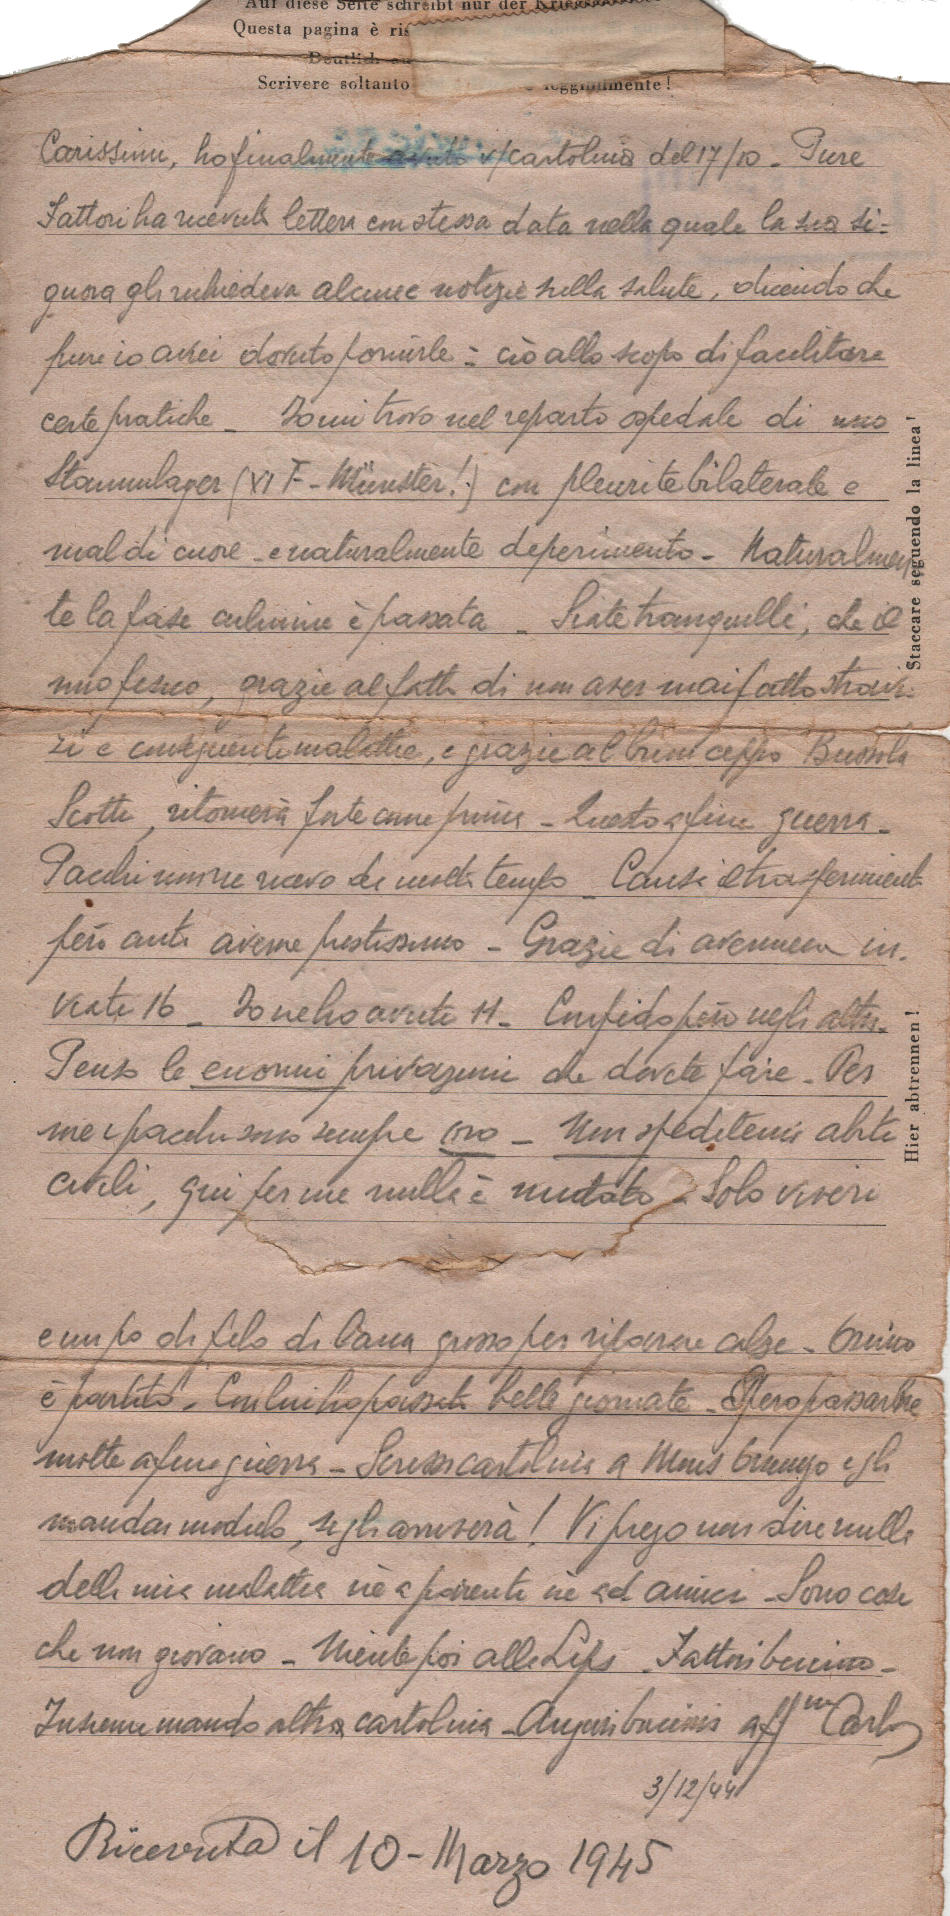 Auf diese Seite schreibt nur der
Questa pagina è ris
Deutlich
Scrivere soltanto leggibilmente!
Carissimi, ho finalmente avuto v/cartolina del 17/10 - Pure
Fattori ha ricevuto lettera con stessa data nella quale la sua si-
gnora gli richiedeva alcune notizie sulla salute, dicendo che
pure io avrei dovuto fornirle - ciò allo scopo di facilitare
certe pratiche - Io mi trovo nel reparto ospedale di uno
Stammlager (VI F - Münster!) con pleurite bilaterale e
mal di cuore - e naturalmente deperimento - Naturalmen
te la fase culmine è passata - State tranquilli, che il
mio fisico, grazie al fatto di non aver mai fatto stravi-
zi e conseguenti malattie, e grazie al buon ceppo Bussola
Scotti, ritornerà forte come prima - Questo a fine guerra -
Pacchi non ne ricevo da molto tempo - Causa il trasferimento
però conto averne prestissimo - Grazie di avermene in-
viati 16 - Io ne ho avuti 11 - Confido però negli altri -
Penso le enormi privazioni che dovete fare - Per
me i pacchi sono sempre oro - Non speditemi abiti
civili, qui per me nulla è mutato - Solo viveri
e un po di filo di lana grosso per riparare calze - Bruno
è partito - Con lui ho passato belle giornate - Spero passarne
molte a fine guerra - Scrissi cartolina a Mons e gli
mandai modulo, se gli arriverà! Vi prego non dire nulla
della mia malattia nè a parenti nè ad amici - Sono cose
che non giovano - Niente poi alle Lips - Fattori benino -
Insieme mando altra cartolina - Auguri bacioni aff.mo Carlo
3/12/44
Ricevuta il 10 - Marzo 1945
Staccare seguendo la linea!
Hier abtrennen!